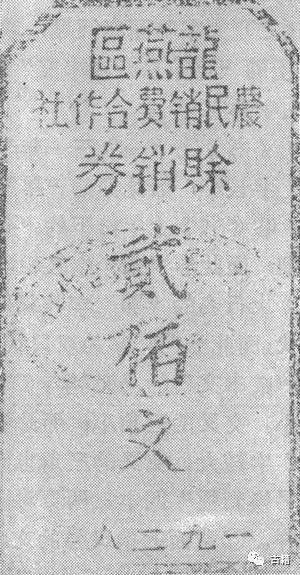 龍燕區
農民銷費合作社
賒銷券
貳佰文
一九二八年